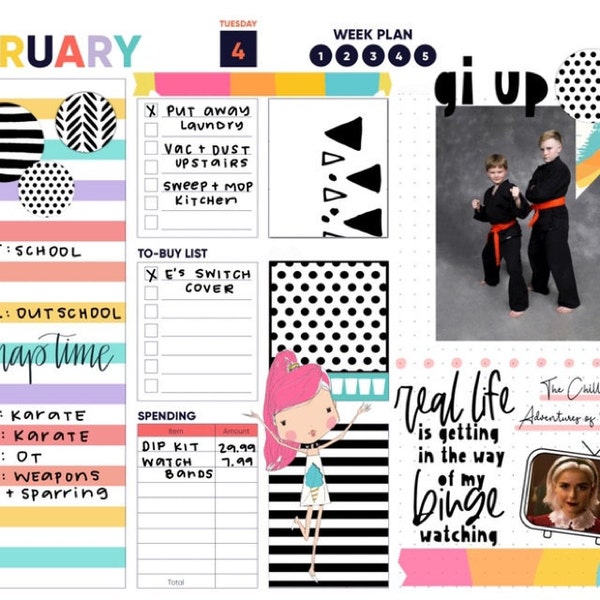 RUARY
TUESDAY
4
WEEK PLAN
1 2 3 4 5
: SCHOOL
: OUTSCHOOL
naptime
: KARATE
: KARATE
: OT
: WEAPONS
+ SPARRING
X PUT AWAY
LAUNDRY
VAC + DUST
UPSTAIRS
SWEEP + MOP
KITCHEN
TO-BUY LIST
X E'S SWITCH
COVER
SPENDING
Item Amount
DIP KIT 29.99
WATCH 7.99
BANDS
Total
gi up
real life
is getting
in the way
of my
binge
watching
The Chill
Adventures of